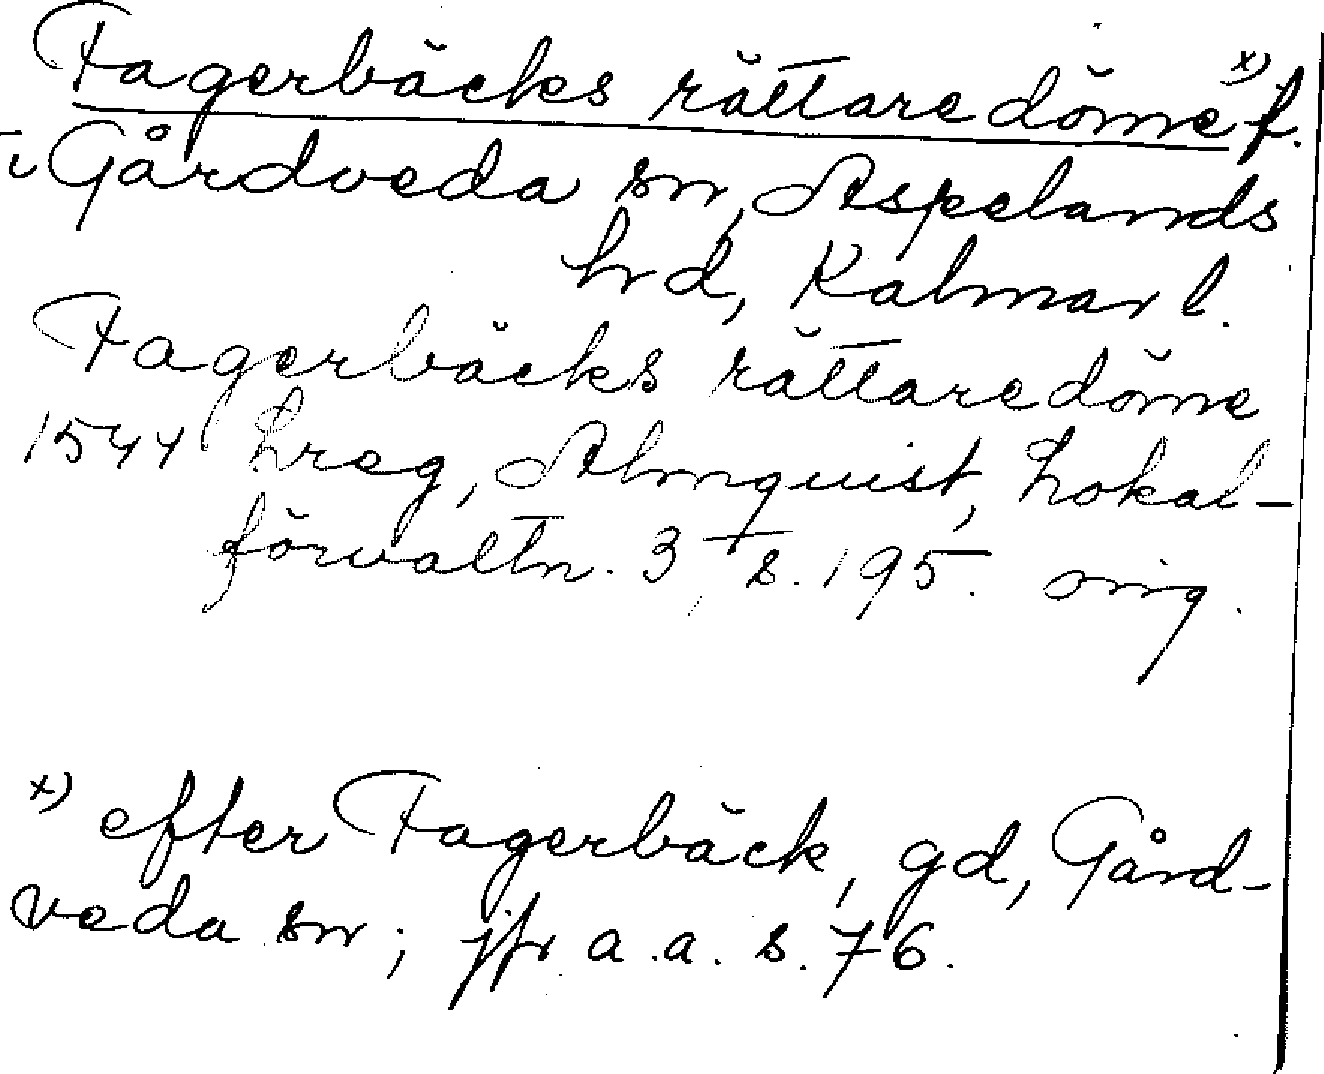 Fagerbäcks rättaredöme x) f.
i Gårdveda sn, Aspelands
hrd, Kalmar l.
Fagerbäcks rättaredöme
1544 Lreg, Almquist, Lokal-
förvaltn. 3, s. 195. orig.
x) efter Fagerbäck, gd, Gård-
veda sn; jfr a.a. s. 76.